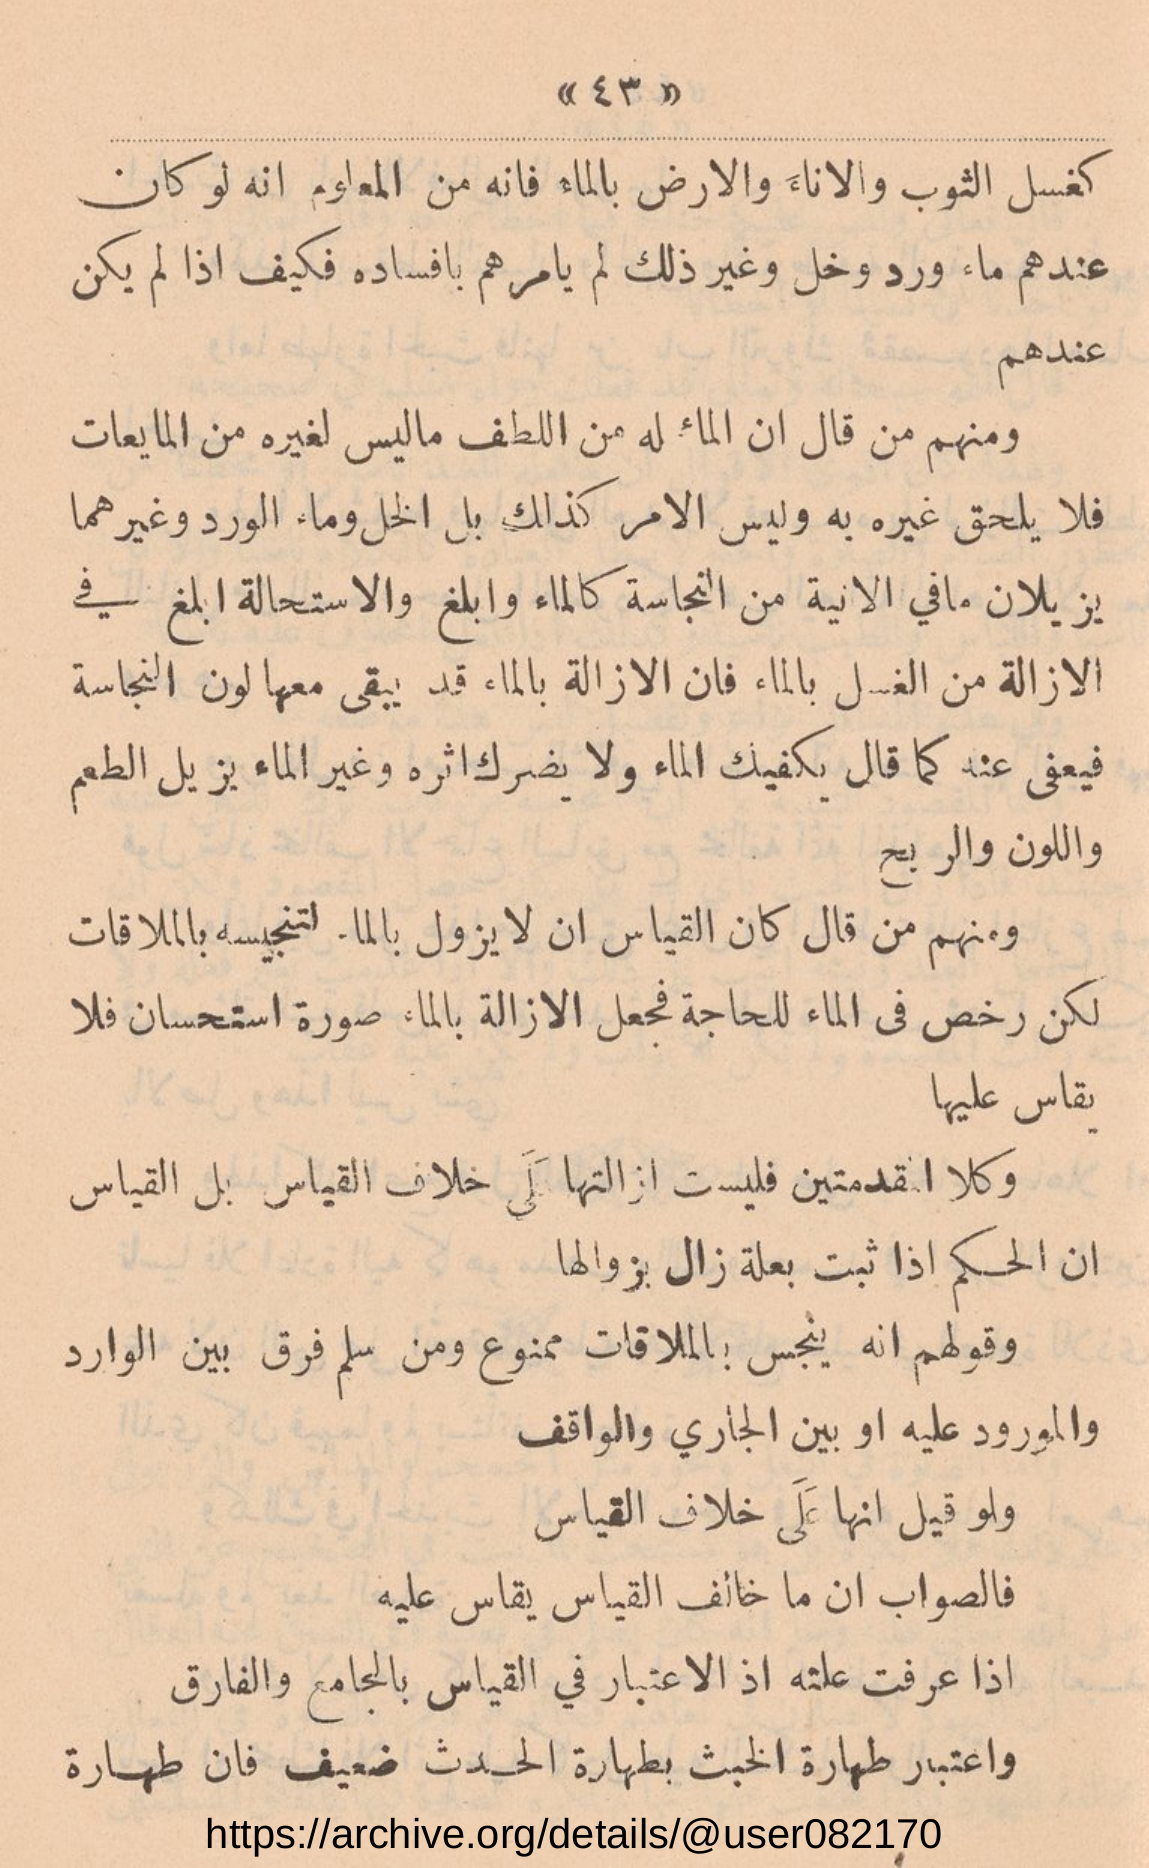 « ٤٣ »
كغسل الثوب والاناءَ والارض بالماء فانه من المعلوم انه لو كان
عندهم ماء ورد وخل وغير ذلك لم يامرهم بافساده فكيف اذا لم يكن
عندهم
ومنهم من قال ان الماء له من اللطف ماليس لغيره من المايعات
فلا يلحق غيره به وليس الامر كذلك بل الخل وماء الورد وغيرهما
يزيلان مافي الانية من النجاسة كالماء وابلغ والاستحالة ابلغ في
الازالة من الغسل بالماء فان الازالة بالماء قد يبقى معها لون النجاسة
فيعفى عنه كما قال يكفيك الماء ولا يضرك اثره وغير الماء يزيل الطعم
واللون والريح
ومنهم من قال كان القياس ان لا يزول بالماء لتنجيسه بالملاقات
لكن رخص فى الماء للحاجة فجعل الازالة بالماء صورة استحسان فلا
يقاس عليها
وكلا المقدمتين فليست ازالتها عَلَى خلاف القياس بل القياس
ان الحكم اذا ثبت بعلة زال بزوالها
وقولهم انه ينجس بالملاقات ممنوع ومن سلم فرق بين الوارد
والمورود عليه او بين الجاري والواقف
ولو قيل انها عَلَى خلاف القياس
فالصواب ان ما خالف القياس يقاس عليه
اذا عرفت علته اذ الاعتبار في القياس بالجامع والفارق
واعتبار طهارة الخبث بطهارة الحدث ضعيف فان طهارة
https://archive.org/details/@user082170